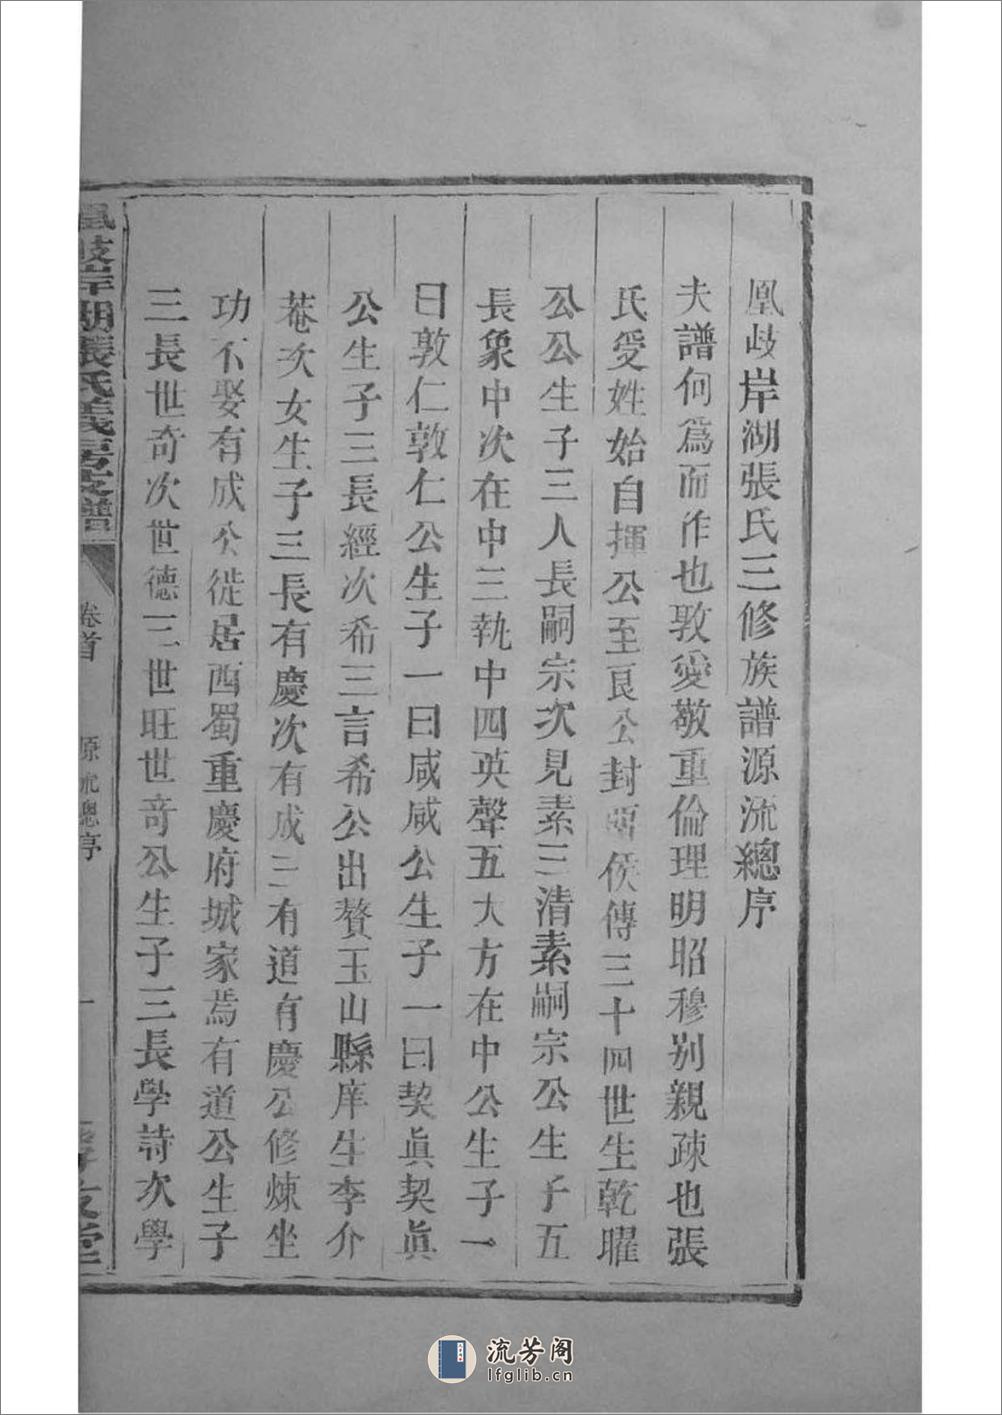 凰歧岸湖張氏三修族譜源流總序
夫譜何爲而作也敦愛敬重倫理明昭穆别親疎也張
氏受姓始自揮公至良公封畱侯傳三十四世生乾曜
公公生子三人長嗣宗次見素三清素嗣宗公生子五
長象中次在中三執中四英聲五大方在中公生子一
曰敦仁敦仁公生子一曰咸咸公生子一曰契眞契眞
公生子三長經次希三言希公出贅玉山縣庠生李介
菴次女生子三長有慶次有成三有道有慶公修煉坐
功不娶有成公徙居西蜀重慶府城家焉有道公生子
三長世奇次世德三世旺世奇公生子三長學詩次學
凰歧岸湖張氏義房支譜
卷首
源流總序
一
孝友堂
流芳阁
lfglib.cn